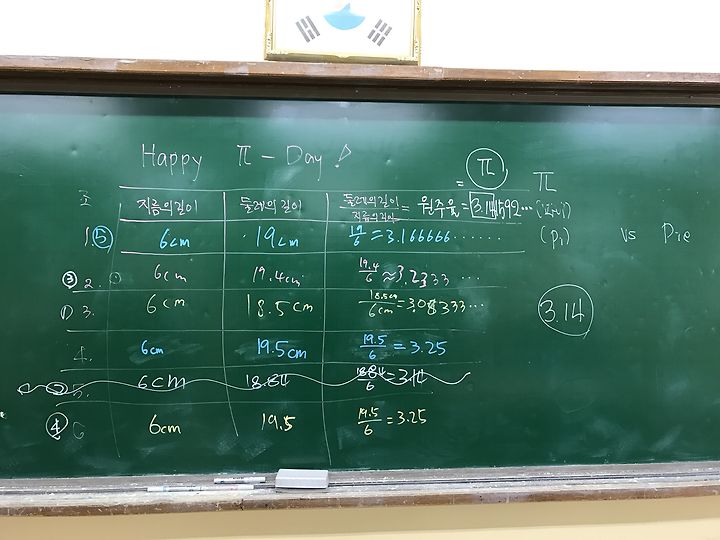 Happy π-Day!
조 지름의길이 둘레의길이 둘레의길이/지름의길이 = 원주율 = 3.141592… = π π
1 ⑤ 6cm 19cm 19/6 = 3.166666…… (pi) vs Pie
③ 2. 6cm 19.4cm 19.4/6 ≈ 3.2333…
① 3. 6cm 18.5cm 18.5cm/6cm = 3.08333… 3.14
4. 6cm 19.5cm 19.5/6 = 3.25
5. 6cm 18.84 18.84/6 = 3.14
④ 6 6cm 19.5 19.5/6 = 3.25